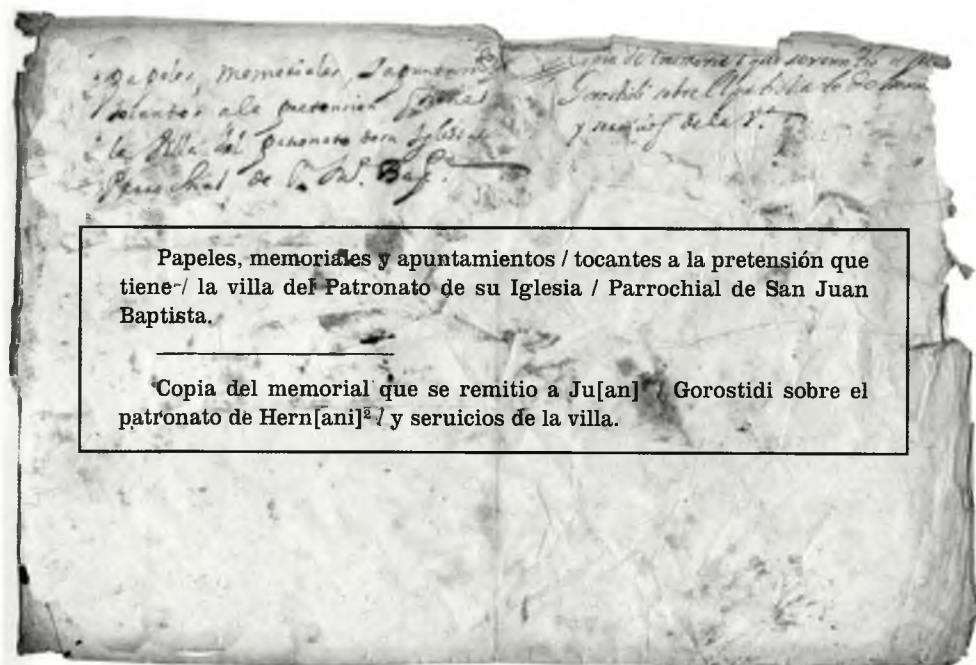 papeles, memoriales, y apuntam
tocantes a la pretension
la Villa del patronato de su Iglesia
Parrochial de S. Ju. Bap.
Copia del memorial que se remitio a Ju
Gorostidi sobre el
y seruicios de la V.
Papeles, memoriales y apuntamientos / tocantes a la pretensión que
tiene / la villa del Patronato de su Iglesia / Parrochial de San Juan
Baptista.
Copia del memorial que se remitio a Ju[an] / Gorostidi sobre el
patronato de Hern[ani]² / y seruicios de la villa.